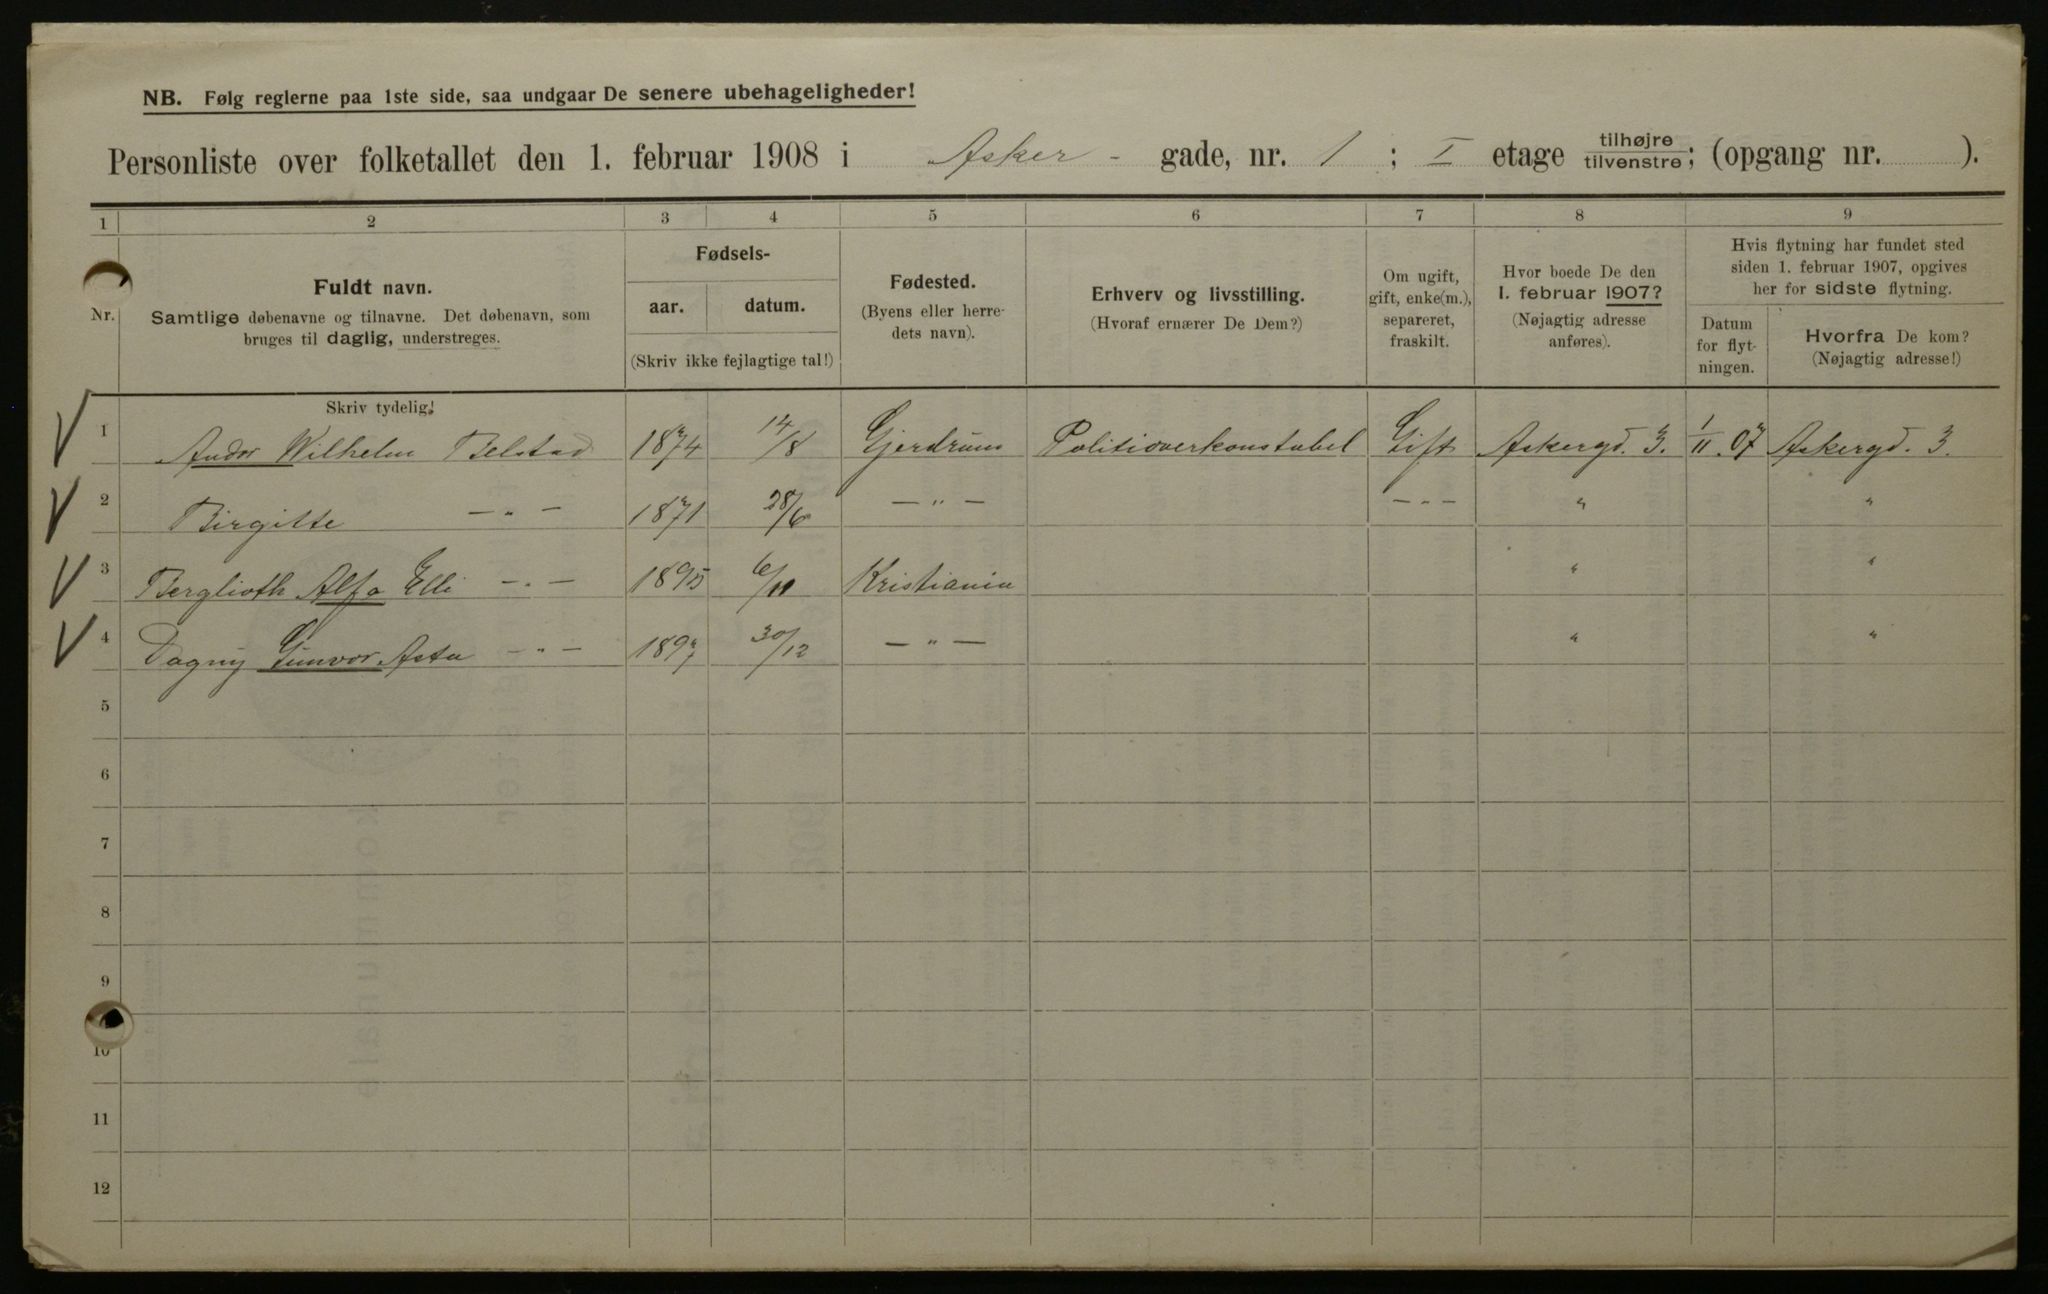 NB. Følg reglerne paa 1ste side, saa undgaar De senere ubehageligheder!
Personliste over folketallet den 1. februar 1908 i Asker - gade, nr. 1 ; I etage tilhøjre tilvenstre; (opgang nr. ).
1 2 3 4 5 6 7 8 9
Nr.
Fuldt navn.
Samtlige døbenavne og tilnavne. Det døbenavn, som
bruges til daglig, understreges.
Skriv tydelig!
Fødsels-
aar. datum.
(Skriv ikke fejlagtige tal!)
Fødested.
(Byens eller herre-
dets navn).
Erhverv og livsstilling.
(Hvoraf ernærer De Dem?)
Om ugift,
gift, enke(m.),
separeret,
fraskilt.
Hvor boede De den
1. februar 1907?
(Nøjagtig adresse
anføres).
Hvis flytning har fundet sted
siden 1. februar 1907, opgives
her for sidste flytning.
Datum
for flyt-
ningen.
Hvorfra De kom?
(Nøjagtig adresse!)
V 1 Andor Wilhelm Belstad 1874 14/8 Gjerdrum Politioverkonstabel Gift Askergd. 3. 1/11 07 Askergd. 3.
V 2 Birgitte — " — 1871 28/6 — " — — " — " "
V 3 Berglioth Alfa Elli — " — 1895 6/11 Kristiania " "
V 4 Dagny Gunvor Asta — " — 1897 30/12 — " — " "
5
6
7
8
9
10
11
12